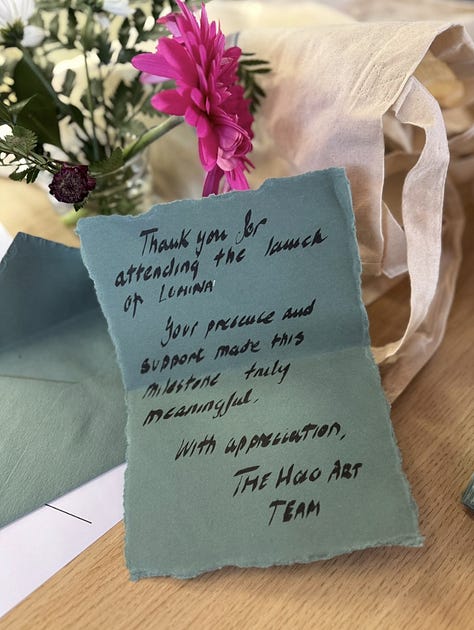 Thank you for
attending the launch
of LUMINA
Your presence and
support made this
milestone truly
meaningful.
With appreciation,
THE HAO ART
TEAM